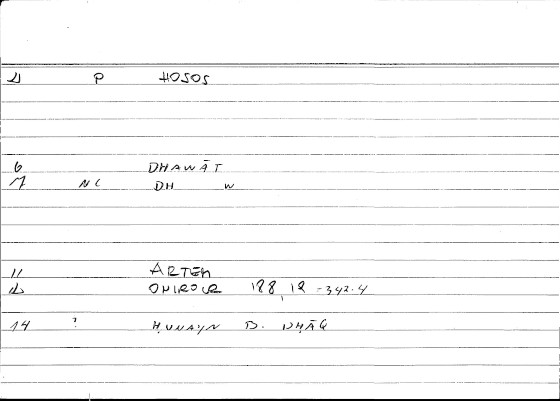 21 P HOSOS
6 DHAWĀT
7 NC DH W
11 ARTEM
12 ONIROCR 188, 12 - 342.4
14 ? ḤUNAYN B. ISḤĀQ